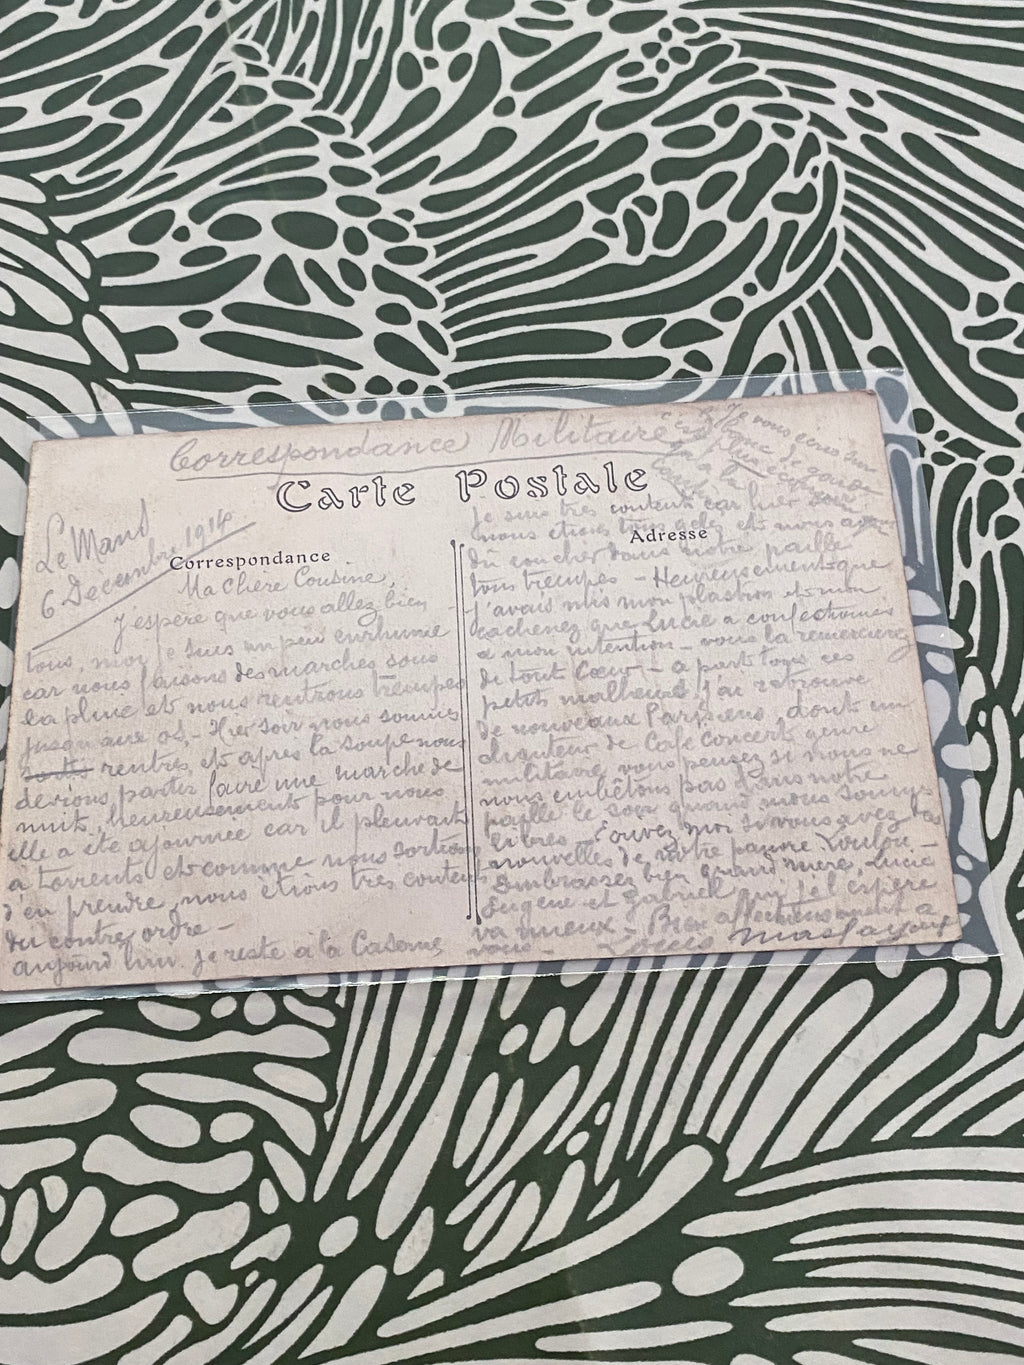 Correspondance Militaire
Carte Postale
Le Mans
6 Decembre 1914
Correspondance
Ma Chère Cousine,
J'espère que vous allez bien
tous, moi je suis un peu enrhumé
car nous faisons des marches sous
la pluie et nous rentrons trempés
jusqu'aux os, - Hier soir nous sommes
rentrés, et après la soupe nous
devions partir faire une marche de
nuit, Heureusement pour nous
elle a été ajournée car il pleuvait
a torrents et comme nous sortions
d'en prendre, nous étions très contents
du contre ordre -
aujourd'hui je reste à la Caserne
Je vous écris sur
Adresse
je suis très content car hier soir
nous étions tous gelés et nous avons
dû coucher dans notre paille
tous trempés - Heureusement que
j'avais mis mon plastron et mon
cachenez que Lucie a confectionnés
a mon intention - vous la remercierez
de tout Cœur - a part tous ces
petits malheurs, j'ai retrouvé
de nouveaux Parisiens, dont un
chanteur de Café concert genre
militaire, vous pensez si nous ne
nous embêtons pas dans notre
paille le soir quand nous sommes
libres - Ecrivez moi si vous avez des
nouvelles de notre pauvre Loulou -
Embrassez bien grand mère, Lucie
Eugène et Gabriel qui j'espère
va mieux - Bien affectueusement a
vous - Louis